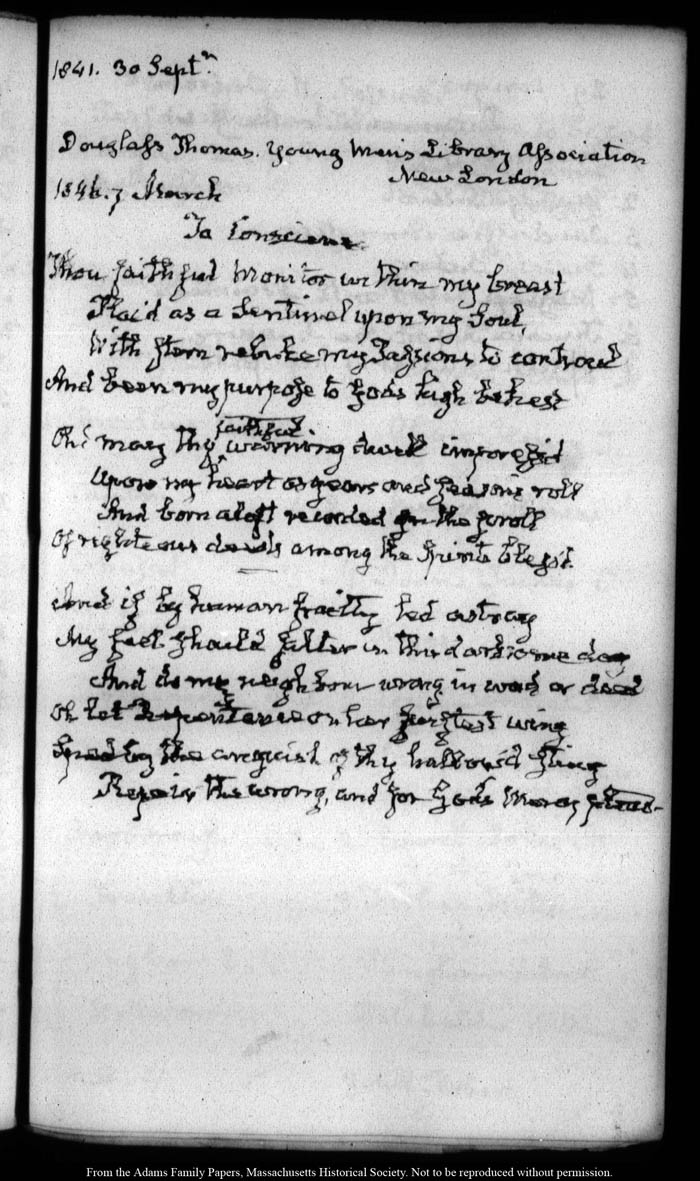 1841. 30 Septr.
Douglass Thomas. Young Men's Library Association
New London
1846. 7 March
To Conscience.
Thou faithful Monitor within my breast
Plac'd as a Sentinel upon my Soul,
With stern rebuke my Passions to controul
And bend my purpose to God's high behest
Oh! may thy faithful warning dwell impress'd
Upon my heart as years and seasons roll
And born aloft recorded on the scroll
Of righteous deeds among the Spirits bless'd.
And if by human frailty led astray
My feet should falter in this darksome day
And do my neighbour wrong in word or deed
Oh let Repentance on her swiftest wing
Sped by the anguish of thy hallow'd sting
Repair the wrong, and for God's Mercy plead.
From the Adams Family Papers, Massachusetts Historical Society. Not to be reproduced without permission.